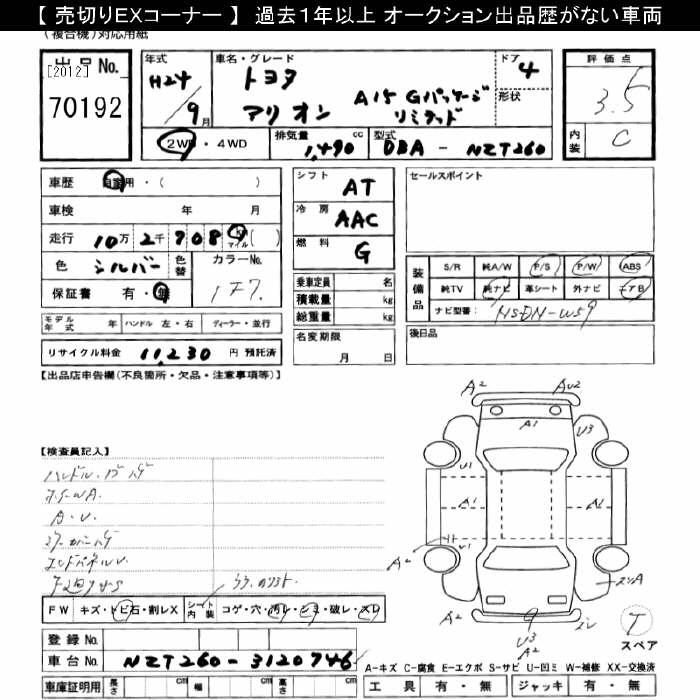 【 売切りEXコーナー 】 過去1年以上 オークション出品歴がない車両
(複合機)対応用紙
出品No.
[2012]
70192
年式
H24
9月
車名・グレード
トヨタ
アリオン
A15 Gパッケージ
リミテッド
ドア
4
形状
評価点
3.5
内装
C
2WD・4WD
排気量
1,490 cc
型式
DBA - NZT260
車歴
自家用・( )
車検 年 月
走行 10万 2千 908 km マイル ( )
色 シルバー 色替
カラーNo.
1F7.
保証書 有・無
モデル年式 年 ハンドル 左・右 ディーラー・並行
リサイクル料金 11,230 円 預託済
シフト AT
冷房 AAC
燃料 G
乗車定員 名
積載量 kg
総重量 kg
名変期限
月 日
セールスポイント
装備品
S/R 純A/W P/S P/W ABS
純TV 純ナビ 革シート 外ナビ エアB
ナビ型番: HSDN-W59
後日品
【出品店申告欄(不良箇所・欠品・注意事項等)】
【検査員記入】
A.U.
FW キズ・トビ石・割レX
シート内装 コゲ・穴・汚レ・シミ・破レ・スレ
登録No.
車台No. NZT260-3120746
車庫証明用 長さ cm 幅 cm 高さ cm
A2
AU2
A1
U3
U1
A1
A1
A2
U1
A2
9
U3
A2
スレ
T
スペア
A-キズ C-腐食 E-エクボ S-サビ U-凹ミ W-補修 XX-交換済
工具 有・無 ジャッキ 有・無